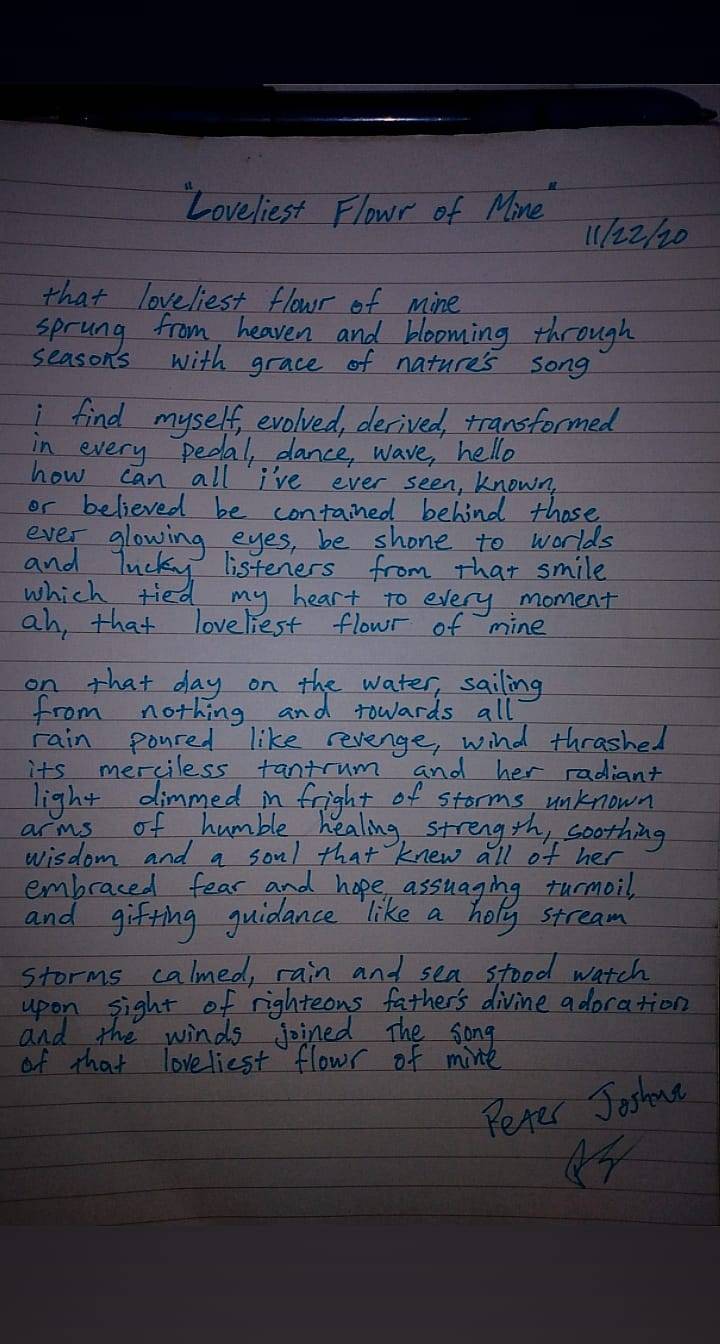 "Loveliest Flowr of Mine"
11/22/20
that loveliest flowr of mine
sprung from heaven and blooming through
seasons with grace of nature's song
i find myself, evolved, derived, transformed
in every pedal, dance, wave, hello
how can all i've ever seen, known,
or believed be contained behind those
ever glowing eyes, be shone to worlds
and lucky listeners from that smile
which tied my heart to every moment
ah, that loveliest flowr of mine
on that day on the water, sailing
from nothing and towards all
rain poured like revenge, wind thrashed
its merciless tantrum and her radiant
light dimmed in fright of storms unknown
arms of humble healing strength, soothing
wisdom and a soul that knew all of her
embraced fear and hope, assuaging turmoil,
and gifting guidance like a holy stream
storms calmed, rain and sea stood watch
upon sight of righteous father's divine adoration
and the winds joined the song
of that loveliest flowr of mine
Peter Joshua